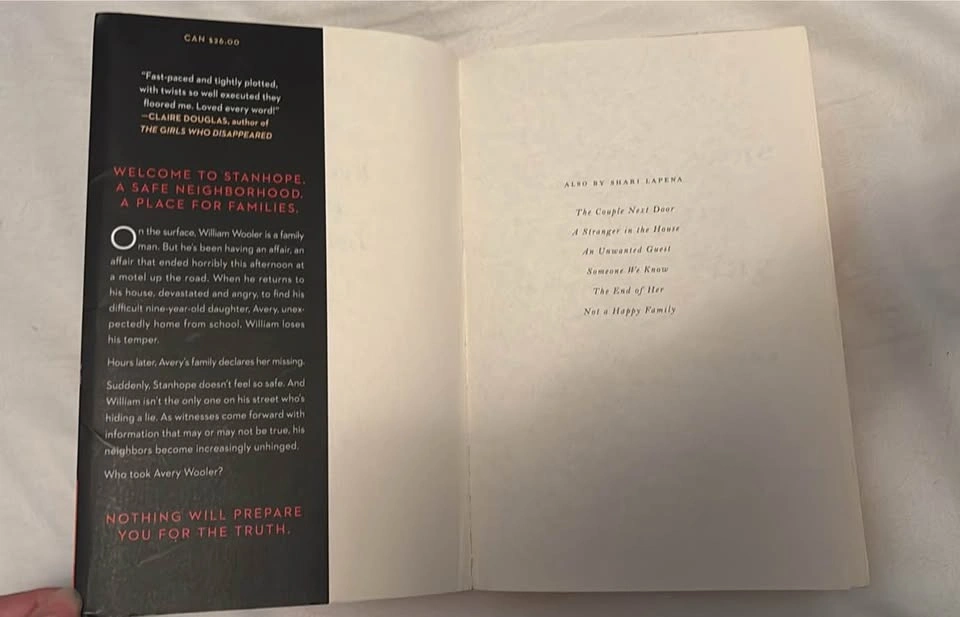 CAN $36.00
"Fast-paced and tightly plotted,
with twists so well executed they
floored me. Loved every word!"
—CLAIRE DOUGLAS, author of
THE GIRLS WHO DISAPPEARED
WELCOME TO STANHOPE.
A SAFE NEIGHBORHOOD.
A PLACE FOR FAMILIES.
On the surface, William Wooler is a family
man. But he's been having an affair, an
affair that ended horribly this afternoon at
a motel up the road. When he returns to
his house, devastated and angry, to find his
difficult nine-year-old daughter, Avery, unex-
pectedly home from school, William loses
his temper.
Hours later, Avery's family declares her missing.
Suddenly, Stanhope doesn't feel so safe. And
William isn't the only one on his street who's
hiding a lie. As witnesses come forward with
information that may or may not be true, his
neighbors become increasingly unhinged.
Who took Avery Wooler?
NOTHING WILL PREPARE
YOU FOR THE TRUTH.
ALSO BY SHARI LAPENA
The Couple Next Door
A Stranger in the House
An Unwanted Guest
Someone We Know
The End of Her
Not a Happy Family